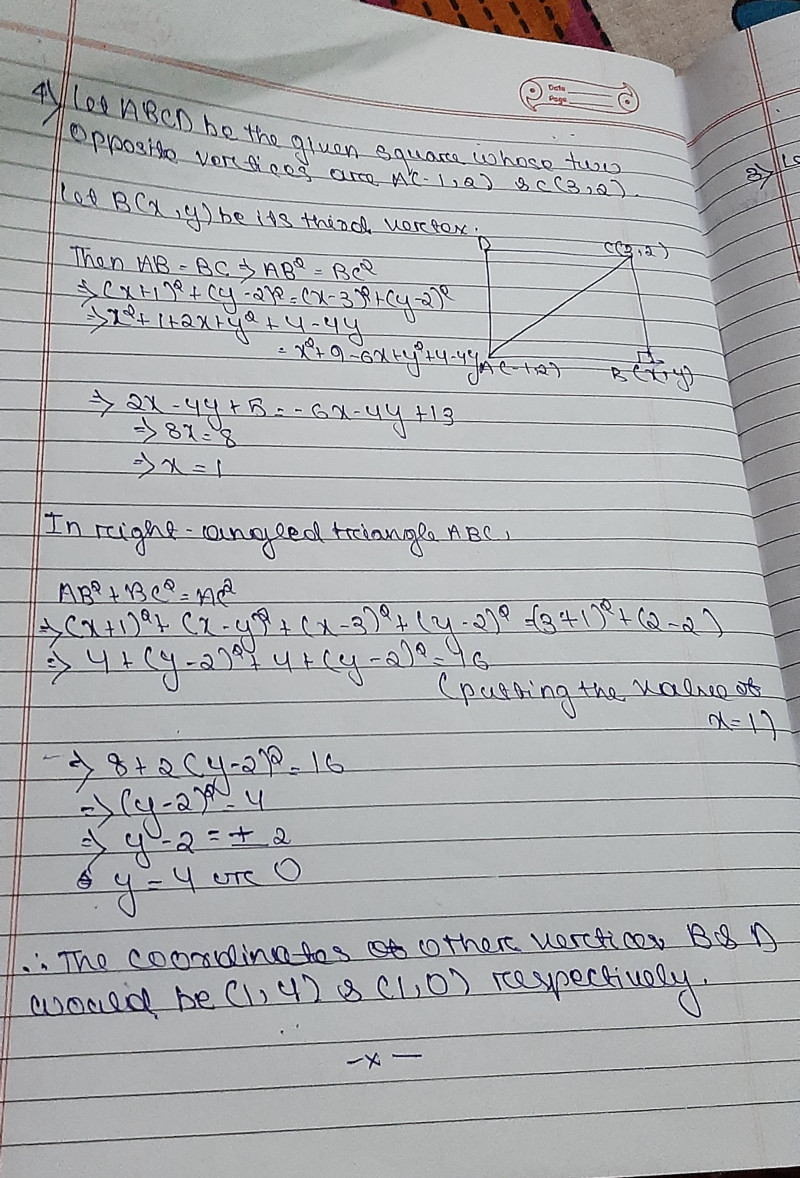 Date
Page
4) Let ABCD be the given square whose two
opposite vertices are A(-1,2) & C(3,2).
Let B(x,y) be its third vertex.
D
C(3,2)
A(-1,2)
B(x,y)
Then AB = BC ⇒ AB² = BC²
⇒ (x+1)² + (y-2)² = (x-3)² + (y-2)²
⇒ x²+1+2x+y²+4-4y
= x²+9-6x+y²+4-4y
⇒ 2x-4y+5 = -6x-4y+13
⇒ 8x = 8
⇒ x = 1
In right-angled triangle ABC,
AB²+BC² = AC²
⇒ (x+1)² + (x-y)² + (x-3)² + (y-2)² = (3+1)² + (2-2)
⇒ 4+(y-2)²+4+(y-2)² = 46
(putting the value of
x=1)
⇒ 8+2(y-2)² = 16
⇒ (y-2)² = 4
⇒ y-2 = ± 2
y = 4 or 0
∴ The coordinates of other vertices B & D
would be (1,4) & (1,0) respectively.
-x-
3)